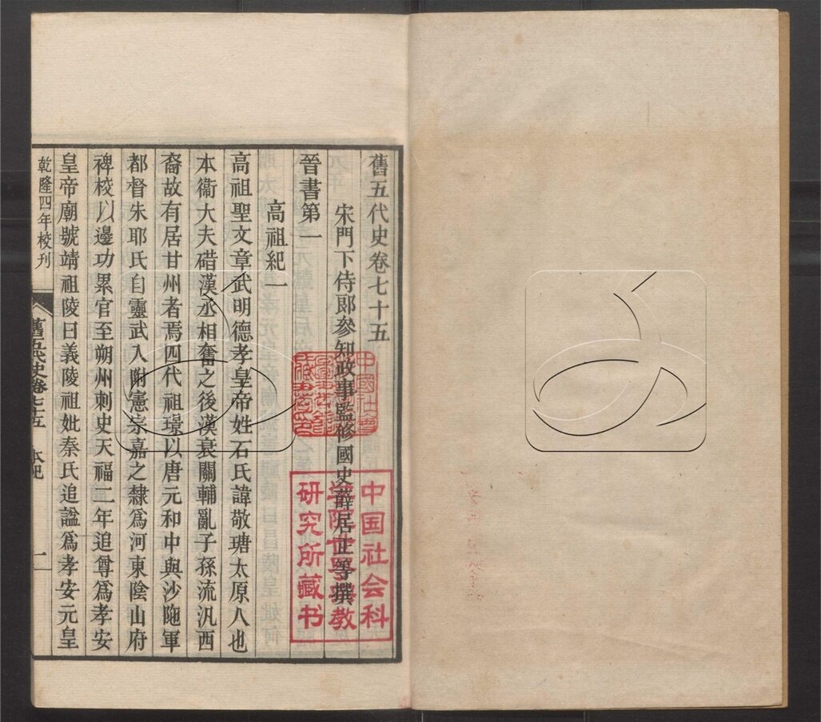 舊五代史卷七十五
宋門下侍郎參知政事監修國史薛居正等撰
晉書第一
高祖紀一
高祖聖文章武明德孝皇帝姓石氏諱敬瑭太原人也
本衞大夫碏漢丞相奮之後漢衰關輔亂子孫流汎西
裔故有居甘州者焉四代祖璟以唐元和中與沙陁軍
都督朱耶氏自靈武入附憲宗嘉之隸爲河東陰山府
裨校以邊功累官至朔州刺史天福二年追尊爲孝安
皇帝廟號靖祖陵曰義陵祖妣秦氏追諡爲孝安元皇
乾隆四年校刊
舊五代史卷七十五 本紀 一
中国社会科
学院世界宗教
研究所藏书